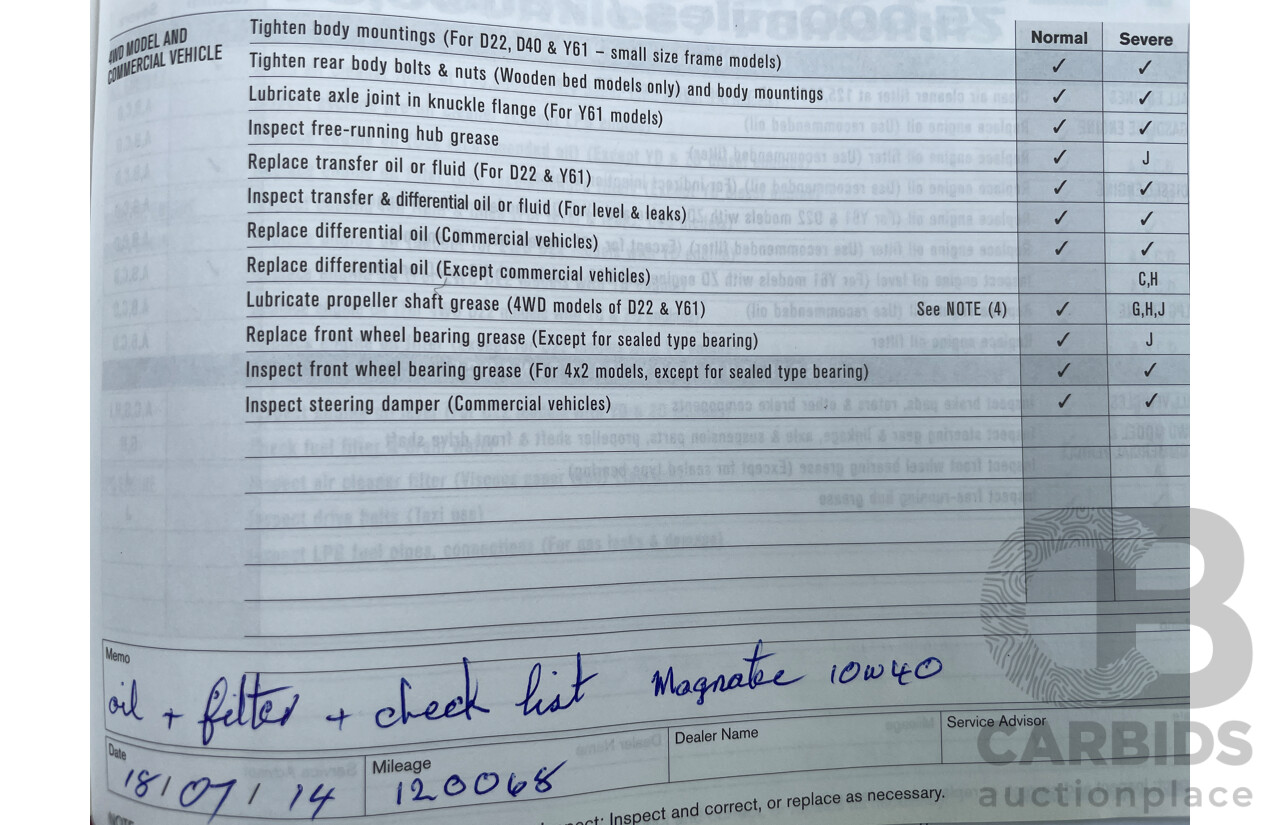 4WD MODEL AND
COMMERCIAL VEHICLE
Normal Severe
Tighten body mountings (For D22, D40 & Y61 – small size frame models) ✓ ✓
Tighten rear body bolts & nuts (Wooden bed models only) and body mountings ✓ ✓
Lubricate axle joint in knuckle flange (For Y61 models) ✓ ✓
Inspect free-running hub grease ✓ J
Replace transfer oil or fluid (For D22 & Y61) ✓ ✓
Inspect transfer & differential oil or fluid (For level & leaks) ✓ ✓
Replace differential oil (Commercial vehicles) ✓ ✓
Replace differential oil (Except commercial vehicles) C,H
Lubricate propeller shaft grease (4WD models of D22 & Y61) See NOTE (4) ✓ G,H,J
Replace front wheel bearing grease (Except for sealed type bearing) ✓ J
Inspect front wheel bearing grease (For 4x2 models, except for sealed type bearing) ✓ ✓
Inspect steering damper (Commercial vehicles) ✓ ✓
Memo
oil + filter + check list Magnatec 10w40
Date Mileage Dealer Name Service Advisor
18/07/14 120068
: Inspect and correct, or replace as necessary.
CARBIDS
auctionplace